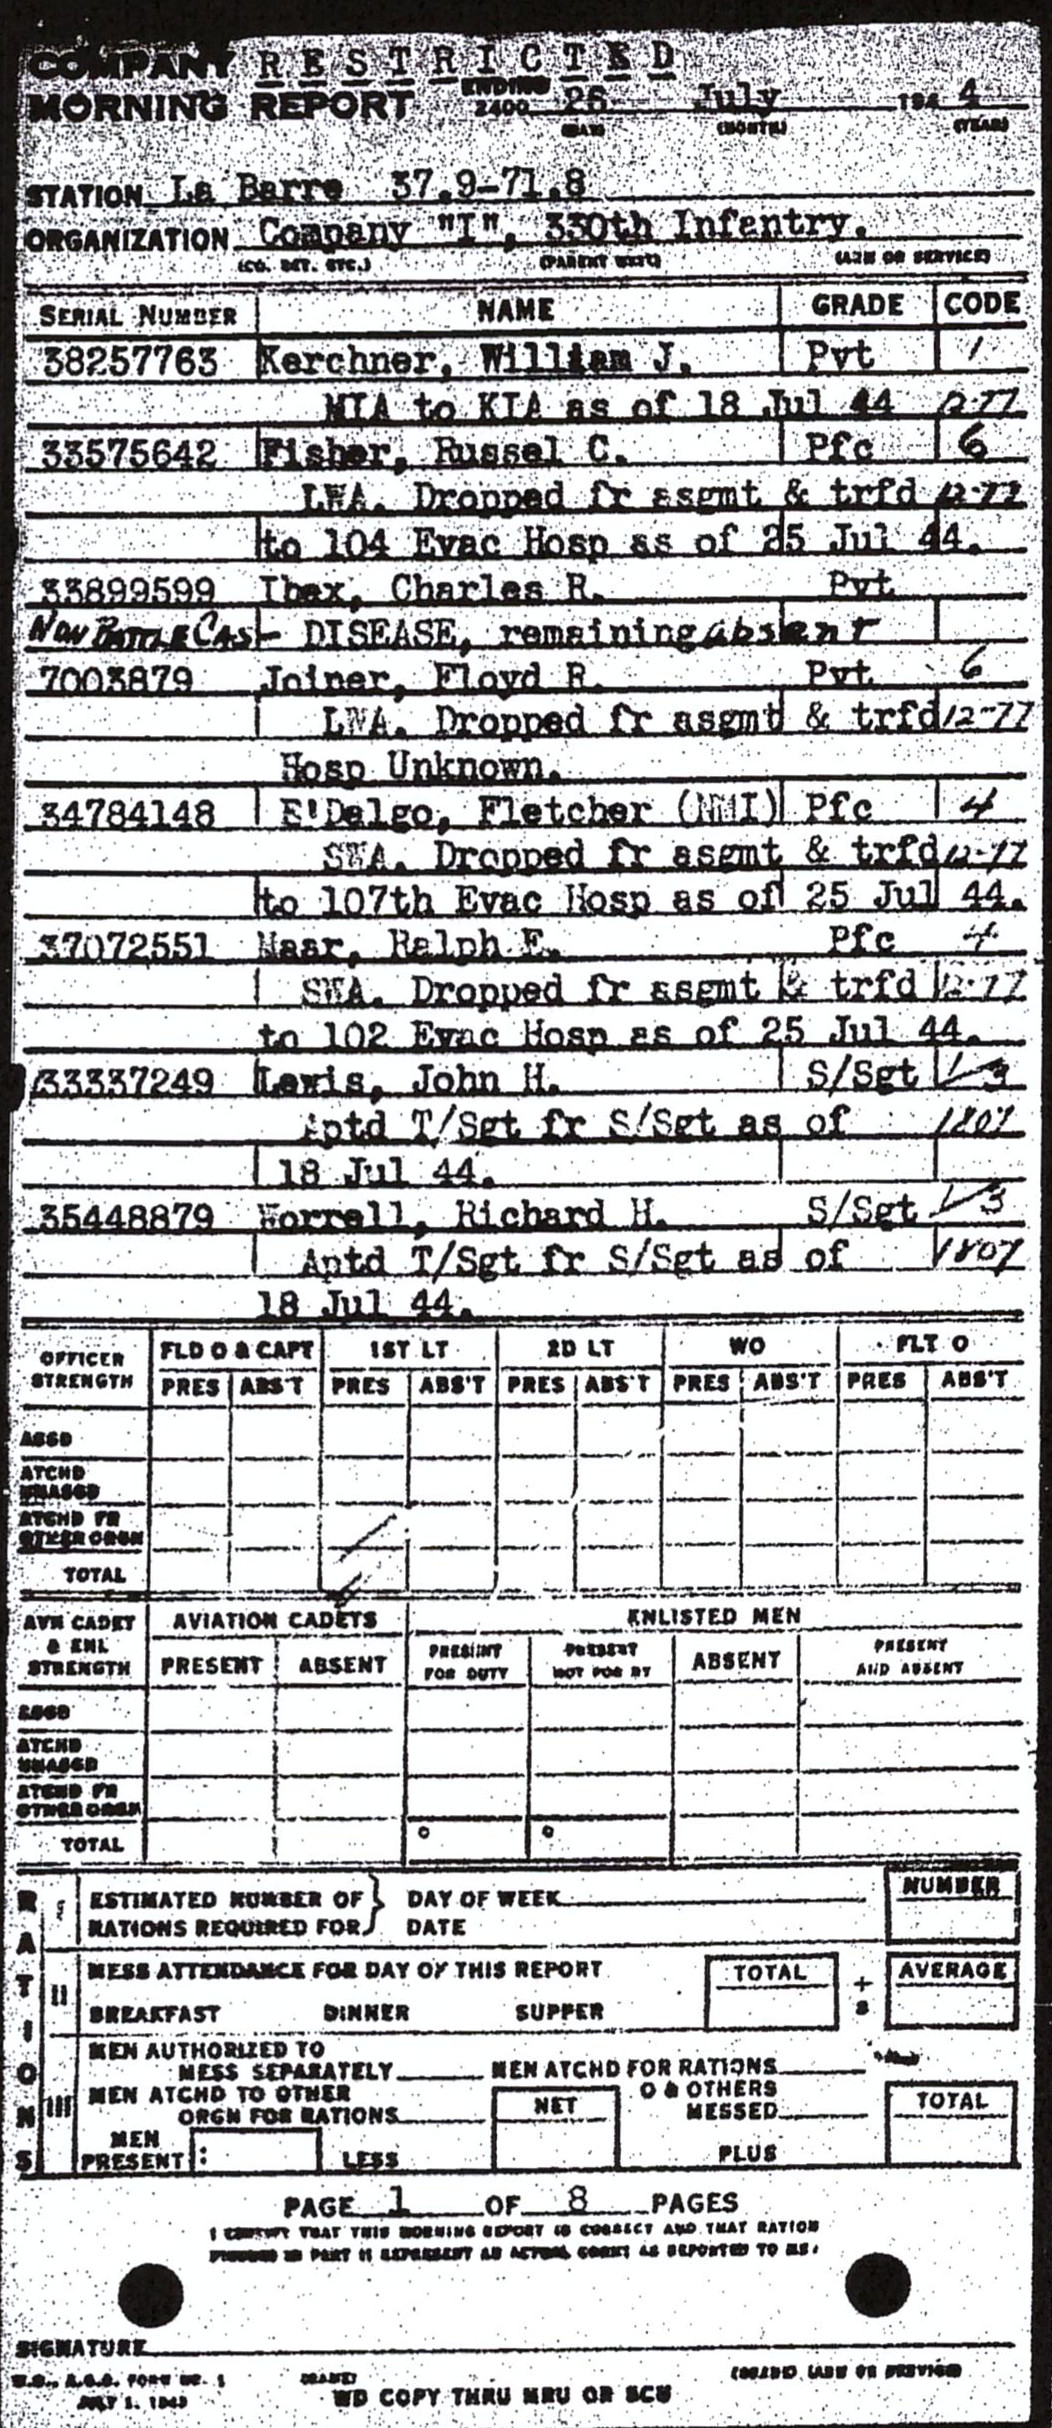 COMPANY RESTRICTED
MORNING REPORT ENDING 2400 26 July 194 4
(DAY) (MONTH) (YEAR)
STATION La Barre 37.9-71.8
ORGANIZATION Company "I", 330th Infantry.
(CO. DET. ETC.) (PARENT UNIT) (ARM OR SERVICE)
SERIAL NUMBER NAME GRADE CODE
38257763 Kerchner, William J. Pvt 1
MIA to KIA as of 18 Jul 44 12-77
33575642 Fisher, Russel C. Pfc 6
LWA. Dropped fr asgmt & trfd 12-77
to 104 Evac Hosp as of 25 Jul 44.
33899599 Ibex, Charles R. Pvt
NON BATTLE CAS - DISEASE, remaining absent
7003879 Joiner, Floyd R. Pvt 6
LWA. Dropped fr asgmt & trfd 12-77
Hosp Unknown.
34784148 E'Delgo, Fletcher (NMI) Pfc 4
SWA. Dropped fr asgmt & trfd 12-77
to 107th Evac Hosp as of 25 Jul 44.
37072551 Haar, Ralph E. Pfc 4
SWA. Dropped fr asgmt & trfd 12-77
to 102 Evac Hosp as of 25 Jul 44.
33337249 Lewis, John H. S/Sgt 3
Aptd T/Sgt fr S/Sgt as of 1807
18 Jul 44.
35448879 Worrell, Richard H. S/Sgt 3
Aptd T/Sgt fr S/Sgt as of 1807
18 Jul 44.
OFFICER STRENGTH FLD O & CAPT 1ST LT 2D LT WO FLT O
PRES ABS'T PRES ABS'T PRES ABS'T PRES ABS'T PRES ABS'T
ASGD
ATCHD UNASGD
ATCHD FR OTHER ORGN
TOTAL
AVN CADET & ENL STRENGTH AVIATION CADETS ENLISTED MEN
PRESENT ABSENT PRESENT FOR DUTY PRESENT NOT FOR DY ABSENT PRESENT AND ABSENT
ASGD
ATCHD UNASGD
ATCHD FR OTHER ORGN
TOTAL
RATIONS
I ESTIMATED NUMBER OF } DAY OF WEEK NUMBER
RATIONS REQUIRED FOR DATE
II MESS ATTENDANCE FOR DAY OF THIS REPORT TOTAL AVERAGE
BREAKFAST DINNER SUPPER
III MEN AUTHORIZED TO
MESS SEPARATELY MEN ATCHD FOR RATIONS
MEN ATCHD TO OTHER NET O & OTHERS TOTAL
ORGN FOR RATIONS MESSED
MEN PRESENT : LESS PLUS
PAGE 1 OF 8 PAGES
I CERTIFY THAT THIS MORNING REPORT IS CORRECT AND THAT RATION
FIGURES IN PART II REPRESENT AN ACTUAL COUNT AS REPORTED TO ME.
SIGNATURE
W.D., A.G.O. FORM NO. 1 (NAME) (GRADE) (ARM OR SERVICE)
JULY 1, 1943 WD COPY THRU MRU OR SCU